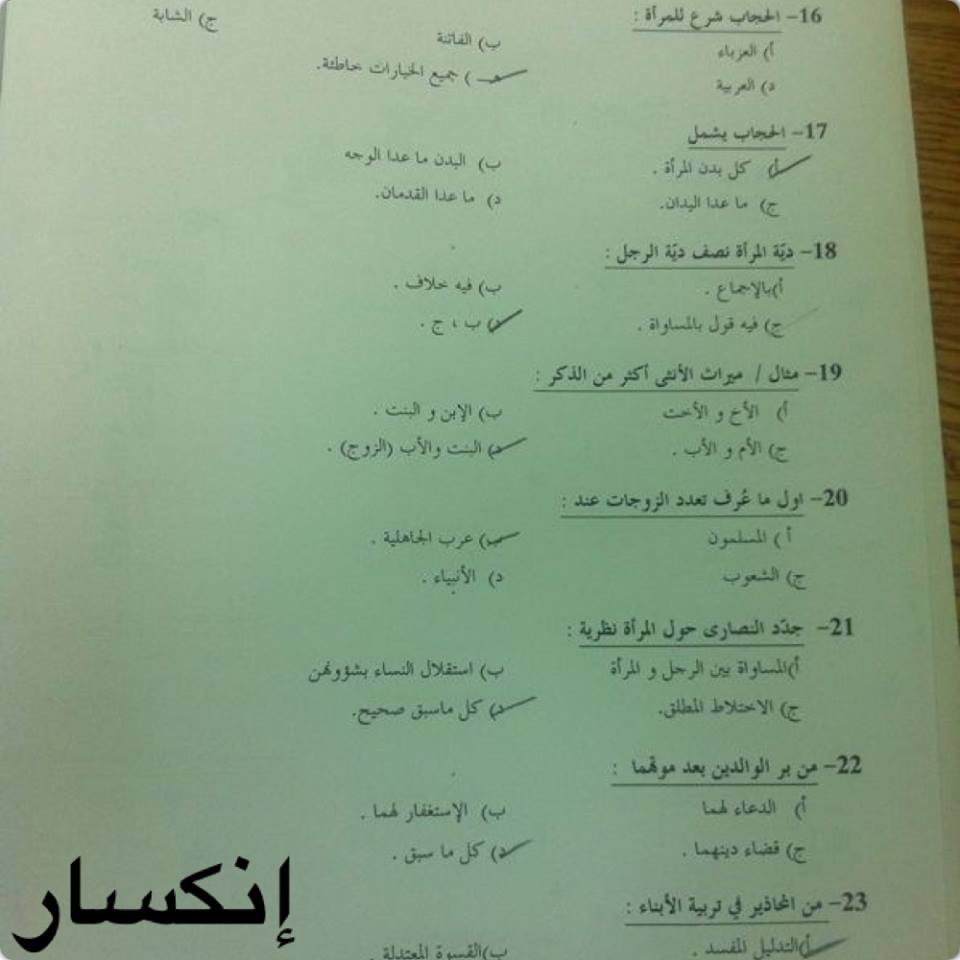 16- الحجاب شرع للمرأة :
أ) العزباء ب) الفاتنة ج) الشابة
د) العربية هـ) جميع الخيارات خاطئة.
17- الحجاب يشمل
أ) كل بدن المرأة . ب) البدن ما عدا الوجه
ج) ما عدا اليدان. د) ما عدا القدمان.
18- ديّة المرأة نصف ديّة الرجل :
أ)بالإجماع . ب) فيه خلاف .
ج) فيه قول بالمساواة . د) ب ، ج .
19- مثال / ميراث الأنثى أكثر من الذكر :
أ) الأخ و الأخت ب) الإبن و البنت .
ج) الأم و الأب . د) البنت والأب (الزوج) .
20- اول ما عُرف تعدد الزوجات عند :
أ ) المسلمون ب) عرب الجاهلية .
ج) الشعوب د) الأنبياء .
21- جدّد النصارى حول المرأة نظرية :
أ)المساواة بين الرجل و المرأة ب) استقلال النساء بشؤونهن
ج) الاختلاط المطلق. د) كل ماسبق صحيح.
22- من بر الوالدين بعد موتهما :
أ) الدعاء لهما ب) الإستغفار لهما .
ج) قضاء دينهما . د) كل ما سبق .
23- من المحاذير في تربية الأبناء :
أ)التدليل المفسد . ب)القسوة المعتدلة
إنكسار